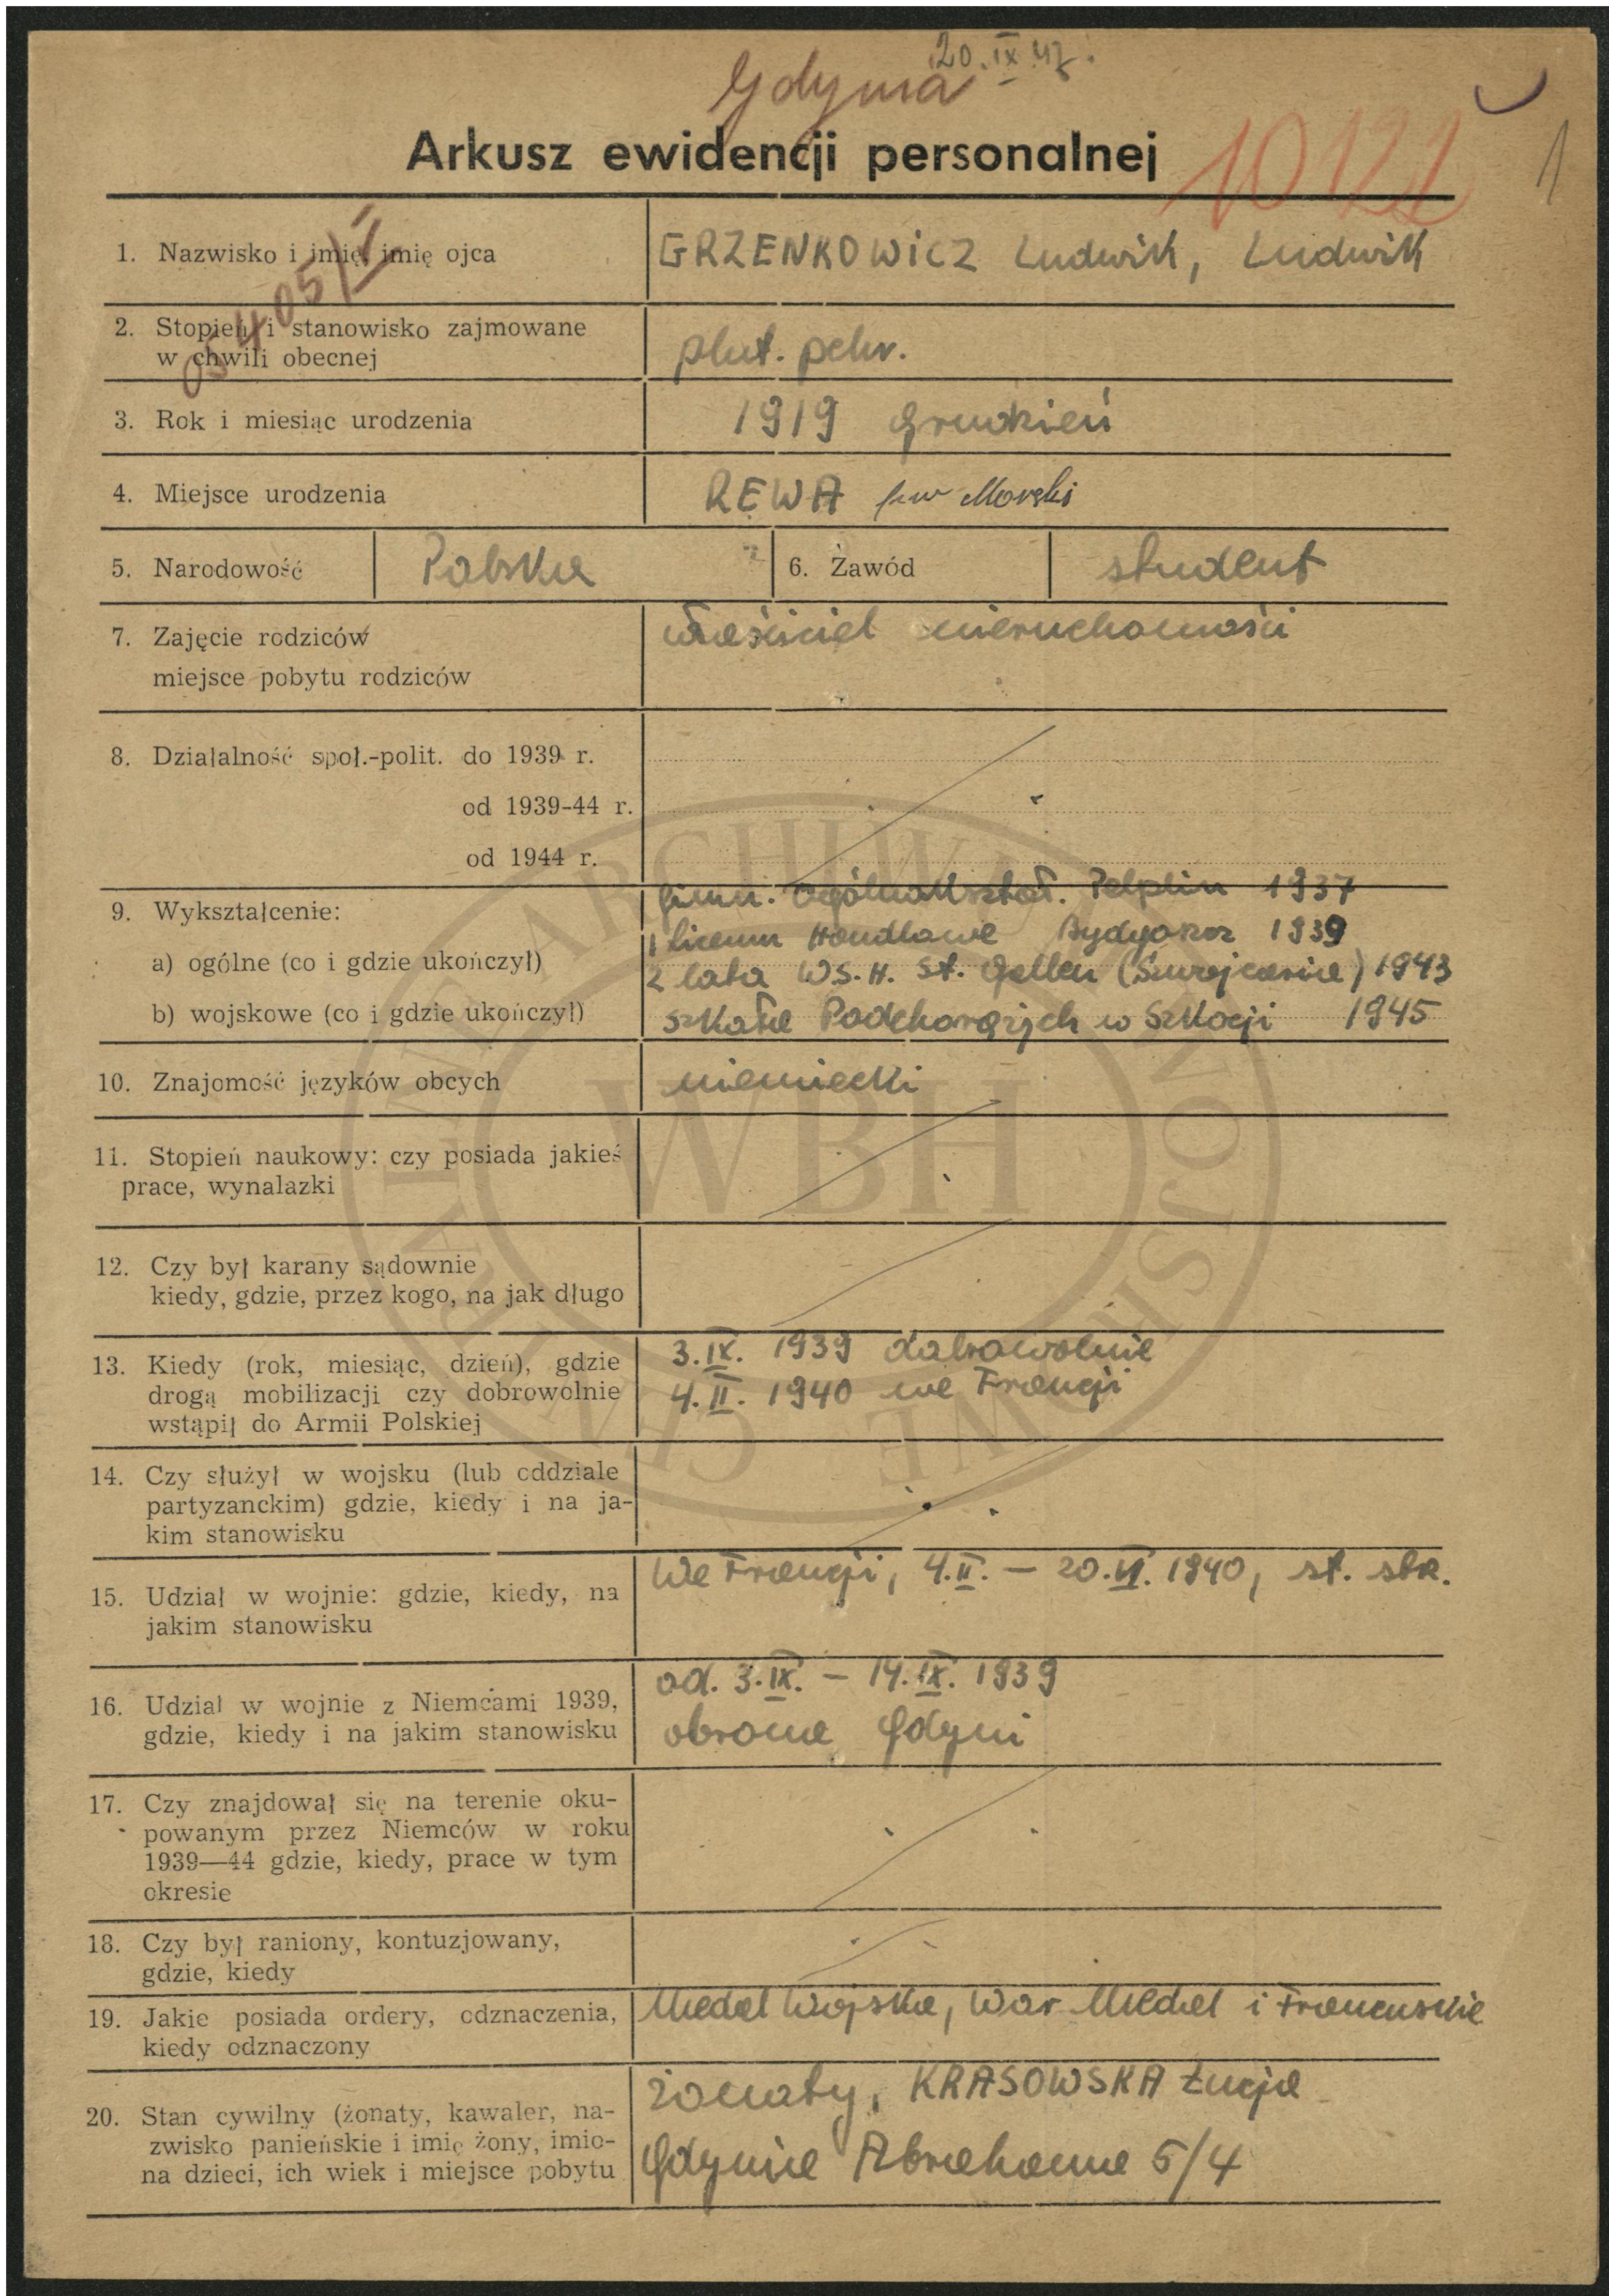 20.IX.47.
Gdynia
Arkusz ewidencji personalnej
10121
1
05405/I
1. Nazwisko i imię, imię ojca
GRZENKOWICZ Ludwik, Ludwik
2. Stopień i stanowisko zajmowane
w chwili obecnej
plut. pchr.
3. Rok i miesiąc urodzenia
1919 grudzień
4. Miejsce urodzenia
REWA pow Morski
5. Narodowość
Polska
6. Zawód
student
7. Zajęcie rodziców
miejsce pobytu rodziców
właściciel nieruchomości
8. Działalność społ.-polit. do 1939 r.
od 1939-44 r.
od 1944 r.
9. Wykształcenie:
a) ogólne (co i gdzie ukończył)
b) wojskowe (co i gdzie ukończył)
gimn. ogólnokształ. Pelplin 1937
1 liceum Handlowe Bydgoszcz 1939
2 lata W.S.H. St. Gallen (Szwajcaria) 1943
szkoła Podchorążych w Szkocji 1945
10. Znajomość języków obcych
niemiecki
11. Stopień naukowy: czy posiada jakieś
prace, wynalazki
12. Czy był karany sądownie
kiedy, gdzie, przez kogo, na jak długo
13. Kiedy (rok, miesiąc, dzień), gdzie
drogą mobilizacji czy dobrowolnie
wstąpił do Armii Polskiej
3.IX. 1939 dobrowolnie
4.II. 1940 we Francji
14. Czy służył w wojsku (lub oddziale
partyzanckim) gdzie, kiedy i na ja-
kim stanowisku
15. Udział w wojnie: gdzie, kiedy, na
jakim stanowisku
We Francji, 4.II. — 20.VI. 1940, st. strz.
16. Udział w wojnie z Niemcami 1939,
gdzie, kiedy i na jakim stanowisku
od. 3.IX. — 14.IX. 1939
obrona Gdyni
17. Czy znajdował się na terenie oku-
powanym przez Niemców w roku
1939—44 gdzie, kiedy, prace w tym
okresie
18. Czy był raniony, kontuzjowany,
gdzie, kiedy
19. Jakie posiada ordery, odznaczenia,
kiedy odznaczony
Medal Wojska, War Medal i Francuskie
20. Stan cywilny (żonaty, kawaler, na-
zwisko panieńskie i imię żony, imio-
na dzieci, ich wiek i miejsce pobytu
żonaty, KRASOWSKA Łucja
Gdynia Abrahama 5/4
WBH